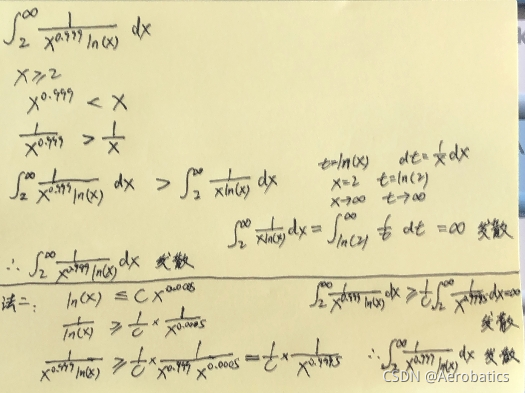 ∫₂^∞ 1/(x^0.999 ln(x)) dx
x ≥ 2
x^0.999 < x
1/x^0.999 > 1/x
∫₂^∞ 1/(x^0.999 ln(x)) dx > ∫₂^∞ 1/(x ln(x)) dx
t=ln(x) dt=1/x dx
x=2 t=ln(2)
x→∞ t→∞
∫₂^∞ 1/(x ln(x)) dx = ∫_ln(2)^∞ 1/t dt = ∞ 发散
∴ ∫₂^∞ 1/(x^0.999 ln(x)) dx 发散
法二: ln(x) ≤ C x^0.0005
1/ln(x) ≥ 1/C × 1/x^0.0005
1/(x^0.999 ln(x)) ≥ 1/C × 1/(x^0.999 x^0.0005) = 1/C × 1/x^0.9995
∫₂^∞ 1/(x^0.999 ln(x)) dx ≥ 1/C ∫₂^∞ 1/x^0.9995 dx=∞
发散
∴ ∫₂^∞ 1/(x^0.999 ln(x)) dx 发散
CSDN @Aerobatics